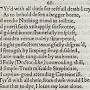 66
Tyr'd with all these for restfull death I cry,
As to behold desert a begger borne,
needie Nothing trimd in iollitie,
purest faith vnhappily forsworne,
gilded honor shamefully misplast,
maiden vertue rudely strumpeted,
right perfection wrongfully disgrac'd,
strength by limping sway disabled,
arte made tung-tide by authoritie,
Folly (Doctor-like) controuling skill,
simple-Truth miscalde Simplicitie,
captiue-good attending Captaine ill.
Tyr'd with all these, from these would I be gone,
Saue that to dye, I leaue my loue alone.